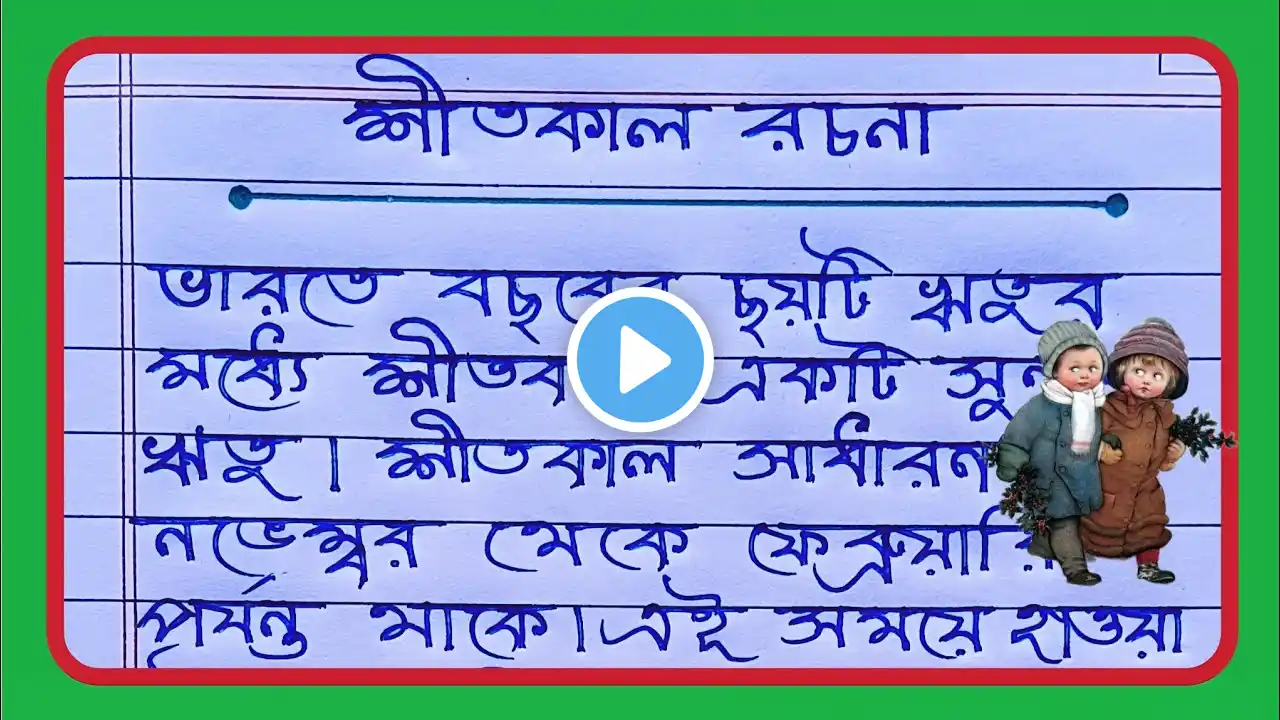 শীতকাল রচনা
ভারতে বছরের ছয়টি ঋতুর
মধ্যে একটি
ঋতু। শীতকাল সাধারন
নভেম্বর থেকে
পর্যন্ত থাকে। এই সময়ে হাওয়া